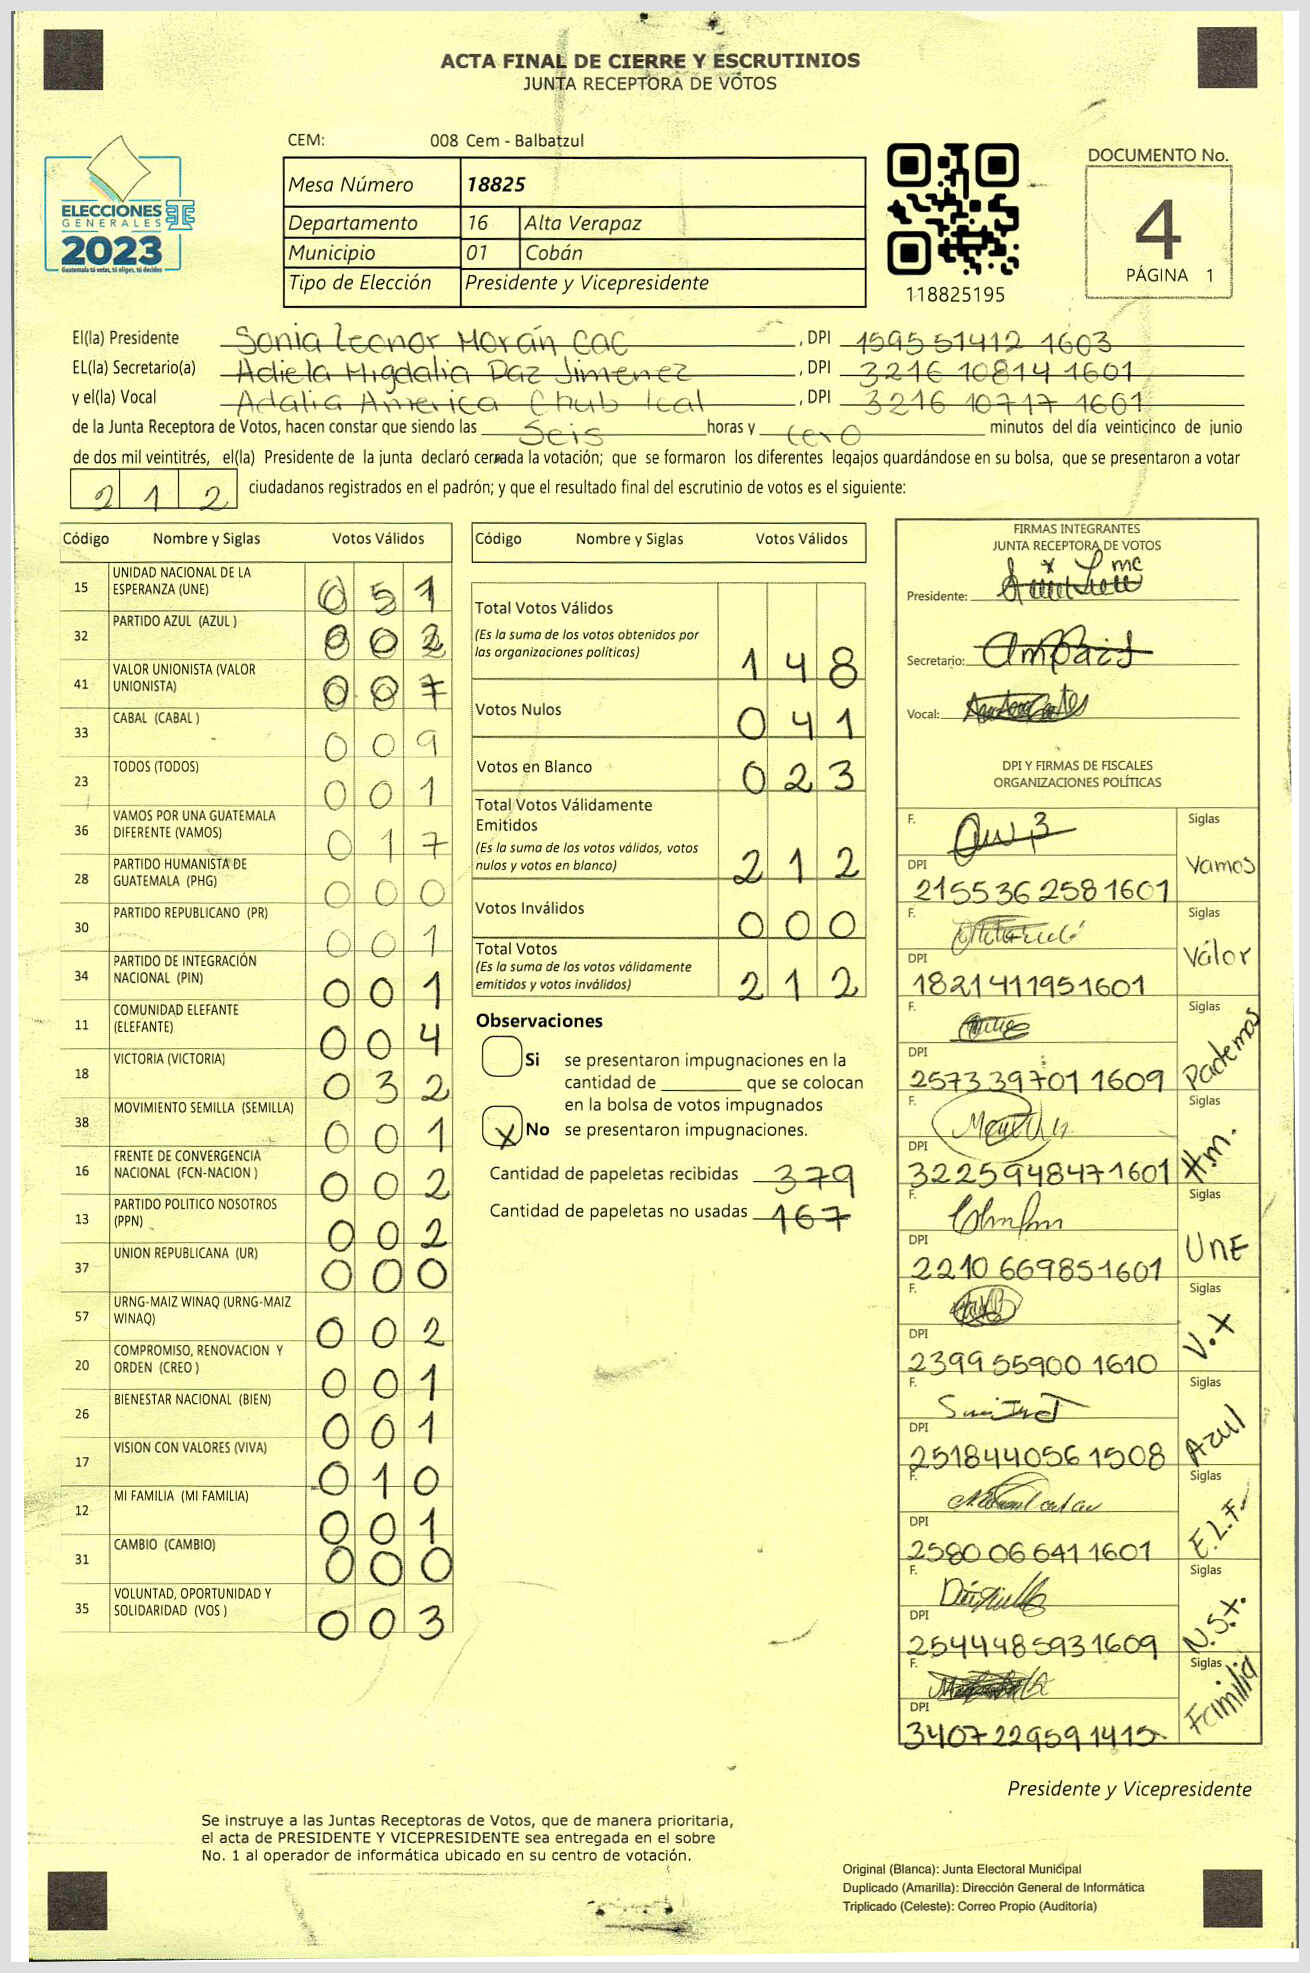 ACTA FINAL DE CIERRE Y ESCRUTINIOS
JUNTA RECEPTORA DE VOTOS
ELECCIONES
GENERALES
2023
Guatemala tú votas, tú eliges, tú decides
CEM: 008 Cem - Balbatzul
Mesa Número 18825
Departamento 16 Alta Verapaz
Municipio 01 Cobán
Tipo de Elección Presidente y Vicepresidente
118825195
DOCUMENTO No.
4
PÁGINA 1
El(la) Presidente Sonia Leonor Morán Cac, DPI 1595 51412 1603
EL(la) Secretario(a) Adiela Migdalia Paz Jimenez, DPI 3216 10814 1601
y el(la) Vocal Adalia America Chub Ical, DPI 3216 10717 1601
de la Junta Receptora de Votos, hacen constar que siendo las Seis horas y cero minutos del día veinticinco de junio
de dos mil veintitrés, el(la) Presidente de la junta declaró cerrada la votación; que se formaron los diferentes legajos guardándose en su bolsa, que se presentaron a votar
212 ciudadanos registrados en el padrón; y que el resultado final del escrutinio de votos es el siguiente:
Código Nombre y Siglas Votos Válidos
15 UNIDAD NACIONAL DE LA ESPERANZA (UNE) 051
32 PARTIDO AZUL (AZUL ) 002
41 VALOR UNIONISTA (VALOR UNIONISTA) 007
33 CABAL (CABAL ) 009
23 TODOS (TODOS) 001
36 VAMOS POR UNA GUATEMALA DIFERENTE (VAMOS) 017
28 PARTIDO HUMANISTA DE GUATEMALA (PHG) 000
30 PARTIDO REPUBLICANO (PR) 001
34 PARTIDO DE INTEGRACIÓN NACIONAL (PIN) 001
11 COMUNIDAD ELEFANTE (ELEFANTE) 004
18 VICTORIA (VICTORIA) 032
38 MOVIMIENTO SEMILLA (SEMILLA) 001
16 FRENTE DE CONVERGENCIA NACIONAL (FCN-NACION ) 002
13 PARTIDO POLITICO NOSOTROS (PPN) 002
37 UNION REPUBLICANA (UR) 000
57 URNG-MAIZ WINAQ (URNG-MAIZ WINAQ) 002
20 COMPROMISO, RENOVACION Y ORDEN (CREO ) 001
26 BIENESTAR NACIONAL (BIEN) 001
17 VISION CON VALORES (VIVA) 010
12 MI FAMILIA (MI FAMILIA) 001
31 CAMBIO (CAMBIO) 000
35 VOLUNTAD, OPORTUNIDAD Y SOLIDARIDAD (VOS ) 003
Código Nombre y Siglas Votos Válidos
Total Votos Válidos
(Es la suma de los votos obtenidos por
las organizaciones políticas) 148
Votos Nulos 041
Votos en Blanco 023
Total Votos Válidamente
Emitidos
(Es la suma de los votos válidos, votos
nulos y votos en blanco) 212
Votos Inválidos 000
Total Votos
(Es la suma de los votos válidamente
emitidos y votos inválidos) 212
Observaciones
Si se presentaron impugnaciones en la
cantidad de ________ que se colocan
en la bolsa de votos impugnados
X No se presentaron impugnaciones.
Cantidad de papeletas recibidas 379
Cantidad de papeletas no usadas 167
FIRMAS INTEGRANTES
JUNTA RECEPTORA DE VOTOS
Presidente:
Secretario:
Vocal:
DPI Y FIRMAS DE FISCALES
ORGANIZACIONES POLÍTICAS
F. Siglas Vamos
DPI 2155 36 258 1601
F. Siglas Válor
DPI 1821 41195 1601
F. Siglas Pademos
DPI 2573 39701 1609
F. Siglas H.M.
DPI 3225948471601
F. Siglas UNE
DPI 2210 66985 1601
F. Siglas V.X
DPI 2399 55900 1610
F. Siglas Azul
DPI 251844056 1508
F. Siglas E.L.F.
DPI 2580 06 641 1601
F. Siglas N.S.X.
DPI 2544485931609
F. Siglas Familia
DPI 3407 22959 1415
Presidente y Vicepresidente
Se instruye a las Juntas Receptoras de Votos, que de manera prioritaria,
el acta de PRESIDENTE Y VICEPRESIDENTE sea entregada en el sobre
No. 1 al operador de informática ubicado en su centro de votación.
Original (Blanca): Junta Electoral Municipal
Duplicado (Amarilla): Dirección General de Informática
Triplicado (Celeste): Correo Propio (Auditoría)